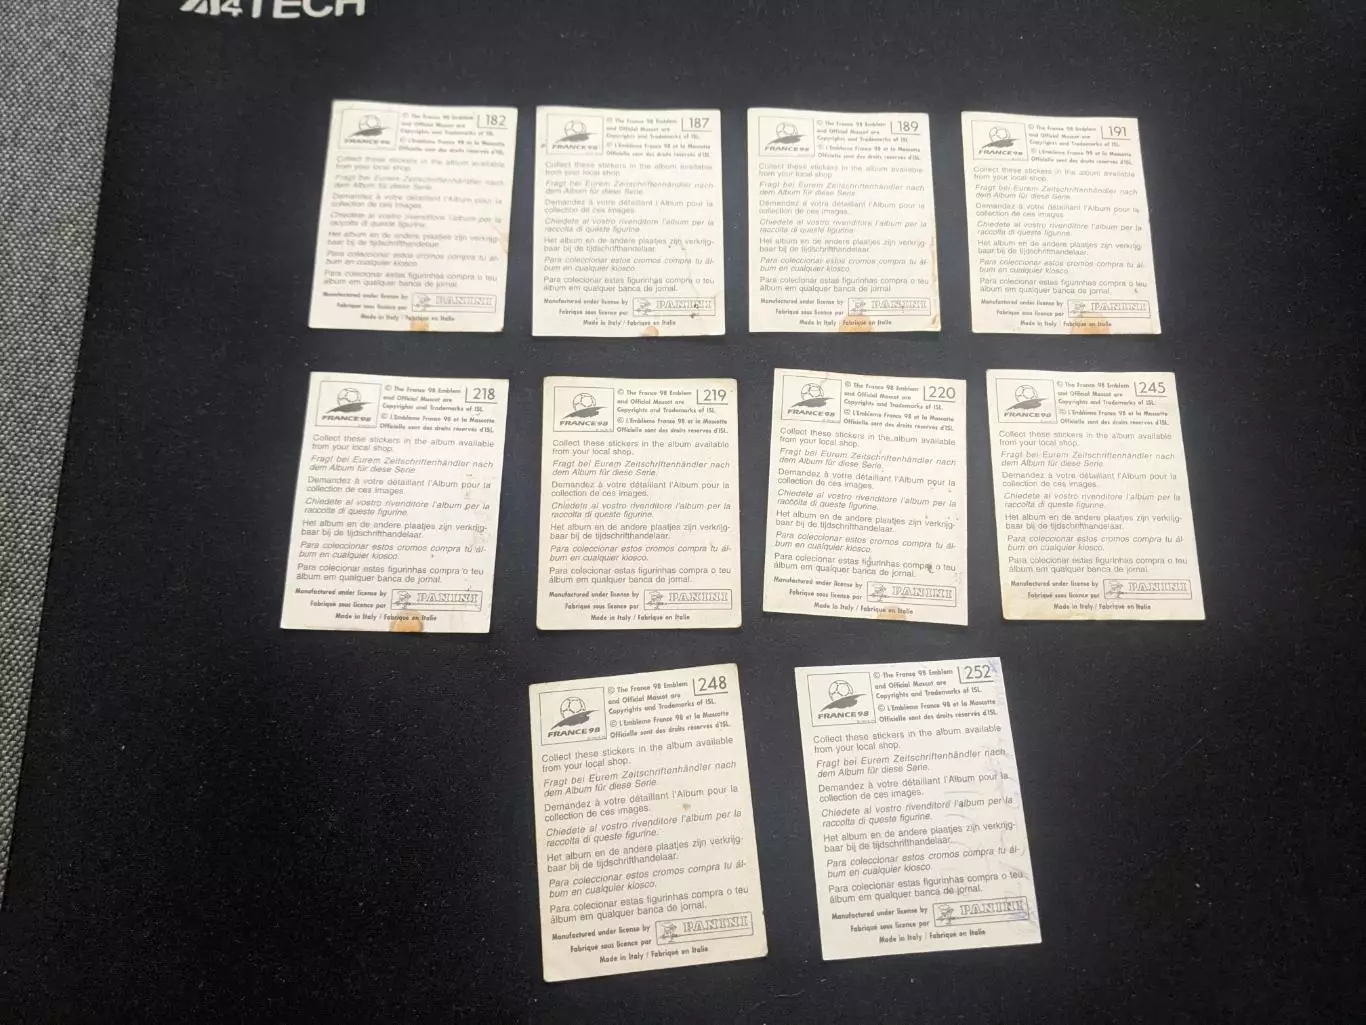 A4TECH
© The France 98 Emblem
and Official Mascot are
Copyrights and Trademarks of ISL.
© L'Emblème France 98 et la Mascotte
Officielle sont des droits réservés d'ISL.
182
FRANCE 98
Collect these stickers in the album available
from your local shop.
Fragt bei Eurem Zeitschriftenhändler nach
dem Album für diese Serie.
Demandez à votre détaillant l'Album pour la
collection de ces images.
Chiedete al vostro rivenditore l'album per la
raccolta di queste figurine.
Het album en de andere plaatjes zijn verkrijg-
baar bij de tijdschrifthandelaar.
Para coleccionar estos cromos compra tu ál-
bum en cualquier kiosco.
Para colecionar estas figurinhas compra o teu
álbum em qualquer banca de jornal.
Manufactured under license by
Fabrique sous licence par
PANINI
Made in Italy / Fabrique en Italie
© The France 98 Emblem
and Official Mascot are
Copyrights and Trademarks of ISL.
© L'Emblème France 98 et la Mascotte
Officielle sont des droits réservés d'ISL.
187
FRANCE 98
Collect these stickers in the album available
from your local shop.
Fragt bei Eurem Zeitschriftenhändler nach
dem Album für diese Serie.
Demandez à votre détaillant l'Album pour la
collection de ces images.
Chiedete al vostro rivenditore l'album per la
raccolta di queste figurine.
Het album en de andere plaatjes zijn verkrijg-
baar bij de tijdschrifthandelaar.
Para coleccionar estos cromos compra tu ál-
bum en cualquier kiosco.
Para colecionar estas figurinhas compra o teu
álbum em qualquer banca de jornal.
Manufactured under license by
Fabrique sous licence par
PANINI
Made in Italy / Fabrique en Italie
© The France 98 Emblem
and Official Mascot are
Copyrights and Trademarks of ISL.
© L'Emblème France 98 et la Mascotte
Officielle sont des droits réservés d'ISL.
189
FRANCE 98
Collect these stickers in the album available
from your local shop.
Fragt bei Eurem Zeitschriftenhändler nach
dem Album für diese Serie.
Demandez à votre détaillant l'Album pour la
collection de ces images.
Chiedete al vostro rivenditore l'album per la
raccolta di queste figurine.
Het album en de andere plaatjes zijn verkrijg-
baar bij de tijdschrifthandelaar.
Para coleccionar estos cromos compra tu ál-
bum en cualquier kiosco.
Para colecionar estas figurinhas compra o teu
álbum em qualquer banca de jornal.
Manufactured under license by
Fabrique sous licence par
PANINI
Made in Italy / Fabrique en Italie
© The France 98 Emblem
and Official Mascot are
Copyrights and Trademarks of ISL.
© L'Emblème France 98 et la Mascotte
Officielle sont des droits réservés d'ISL.
191
FRANCE 98
Collect these stickers in the album available
from your local shop.
Fragt bei Eurem Zeitschriftenhändler nach
dem Album für diese Serie.
Demandez à votre détaillant l'Album pour la
collection de ces images.
Chiedete al vostro rivenditore l'album per la
raccolta di queste figurine.
Het album en de andere plaatjes zijn verkrijg-
baar bij de tijdschrifthandelaar.
Para coleccionar estos cromos compra tu ál-
bum en cualquier kiosco.
Para colecionar estas figurinhas compra o teu
álbum em qualquer banca de jornal.
Manufactured under license by
Fabrique sous licence par
PANINI
Made in Italy / Fabrique en Italie
© The France 98 Emblem
and Official Mascot are
Copyrights and Trademarks of ISL.
© L'Emblème France 98 et la Mascotte
Officielle sont des droits réservés d'ISL.
218
FRANCE 98
Collect these stickers in the album available
from your local shop.
Fragt bei Eurem Zeitschriftenhändler nach
dem Album für diese Serie.
Demandez à votre détaillant l'Album pour la
collection de ces images.
Chiedete al vostro rivenditore l'album per la
raccolta di queste figurine.
Het album en de andere plaatjes zijn verkrijg-
baar bij de tijdschrifthandelaar.
Para coleccionar estos cromos compra tu ál-
bum en cualquier kiosco.
Para colecionar estas figurinhas compra o teu
álbum em qualquer banca de jornal.
Manufactured under license by
Fabrique sous licence par
PANINI
Made in Italy / Fabrique en Italie
© The France 98 Emblem
and Official Mascot are
Copyrights and Trademarks of ISL.
© L'Emblème France 98 et la Mascotte
Officielle sont des droits réservés d'ISL.
219
FRANCE 98
Collect these stickers in the album available
from your local shop.
Fragt bei Eurem Zeitschriftenhändler nach
dem Album für diese Serie.
Demandez à votre détaillant l'Album pour la
collection de ces images.
Chiedete al vostro rivenditore l'album per la
raccolta di queste figurine.
Het album en de andere plaatjes zijn verkrijg-
baar bij de tijdschrifthandelaar.
Para coleccionar estos cromos compra tu ál-
bum en cualquier kiosco.
Para colecionar estas figurinhas compra o teu
álbum em qualquer banca de jornal.
Manufactured under license by
Fabrique sous licence par
PANINI
Made in Italy / Fabrique en Italie
© The France 98 Emblem
and Official Mascot are
Copyrights and Trademarks of ISL.
© L'Emblème France 98 et la Mascotte
Officielle sont des droits réservés d'ISL.
220
FRANCE 98
Collect these stickers in the album available
from your local shop.
Fragt bei Eurem Zeitschriftenhändler nach
dem Album für diese Serie.
Demandez à votre détaillant l'Album pour la
collection de ces images.
Chiedete al vostro rivenditore l'album per la
raccolta di queste figurine.
Het album en de andere plaatjes zijn verkrijg-
baar bij de tijdschrifthandelaar.
Para coleccionar estos cromos compra tu ál-
bum en cualquier kiosco.
Para colecionar estas figurinhas compra o teu
álbum em qualquer banca de jornal.
Manufactured under license by
Fabrique sous licence par
PANINI
Made in Italy / Fabrique en Italie
© The France 98 Emblem
and Official Mascot are
Copyrights and Trademarks of ISL.
© L'Emblème France 98 et la Mascotte
Officielle sont des droits réservés d'ISL.
245
FRANCE 98
Collect these stickers in the album available
from your local shop.
Fragt bei Eurem Zeitschriftenhändler nach
dem Album für diese Serie.
Demandez à votre détaillant l'Album pour la
collection de ces images.
Chiedete al vostro rivenditore l'album per la
raccolta di queste figurine.
Het album en de andere plaatjes zijn verkrijg-
baar bij de tijdschrifthandelaar.
Para coleccionar estos cromos compra tu ál-
bum en cualquier kiosco.
Para colecionar estas figurinhas compra o teu
álbum em qualquer banca de jornal.
Manufactured under license by
Fabrique sous licence par
PANINI
Made in Italy / Fabrique en Italie
© The France 98 Emblem
and Official Mascot are
Copyrights and Trademarks of ISL.
© L'Emblème France 98 et la Mascotte
Officielle sont des droits réservés d'ISL.
248
FRANCE 98
Collect these stickers in the album available
from your local shop.
Fragt bei Eurem Zeitschriftenhändler nach
dem Album für diese Serie.
Demandez à votre détaillant l'Album pour la
collection de ces images.
Chiedete al vostro rivenditore l'album per la
raccolta di queste figurine.
Het album en de andere plaatjes zijn verkrijg-
baar bij de tijdschrifthandelaar.
Para coleccionar estos cromos compra tu ál-
bum en cualquier kiosco.
Para colecionar estas figurinhas compra o teu
álbum em qualquer banca de jornal.
Manufactured under license by
Fabrique sous licence par
PANINI
Made in Italy / Fabrique en Italie
© The France 98 Emblem
and Official Mascot are
Copyrights and Trademarks of ISL.
© L'Emblème France 98 et la Mascotte
Officielle sont des droits réservés d'ISL.
252
FRANCE 98
Collect these stickers in the album available
from your local shop.
Fragt bei Eurem Zeitschriftenhändler nach
dem Album für diese Serie.
Demandez à votre détaillant l'Album pour la
collection de ces images.
Chiedete al vostro rivenditore l'album per la
raccolta di queste figurine.
Het album en de andere plaatjes zijn verkrijg-
baar bij de tijdschrifthandelaar.
Para coleccionar estos cromos compra tu ál-
bum en cualquier kiosco.
Para colecionar estas figurinhas compra o teu
álbum em qualquer banca de jornal.
Manufactured under license by
Fabrique sous licence par
PANINI
Made in Italy / Fabrique en Italie